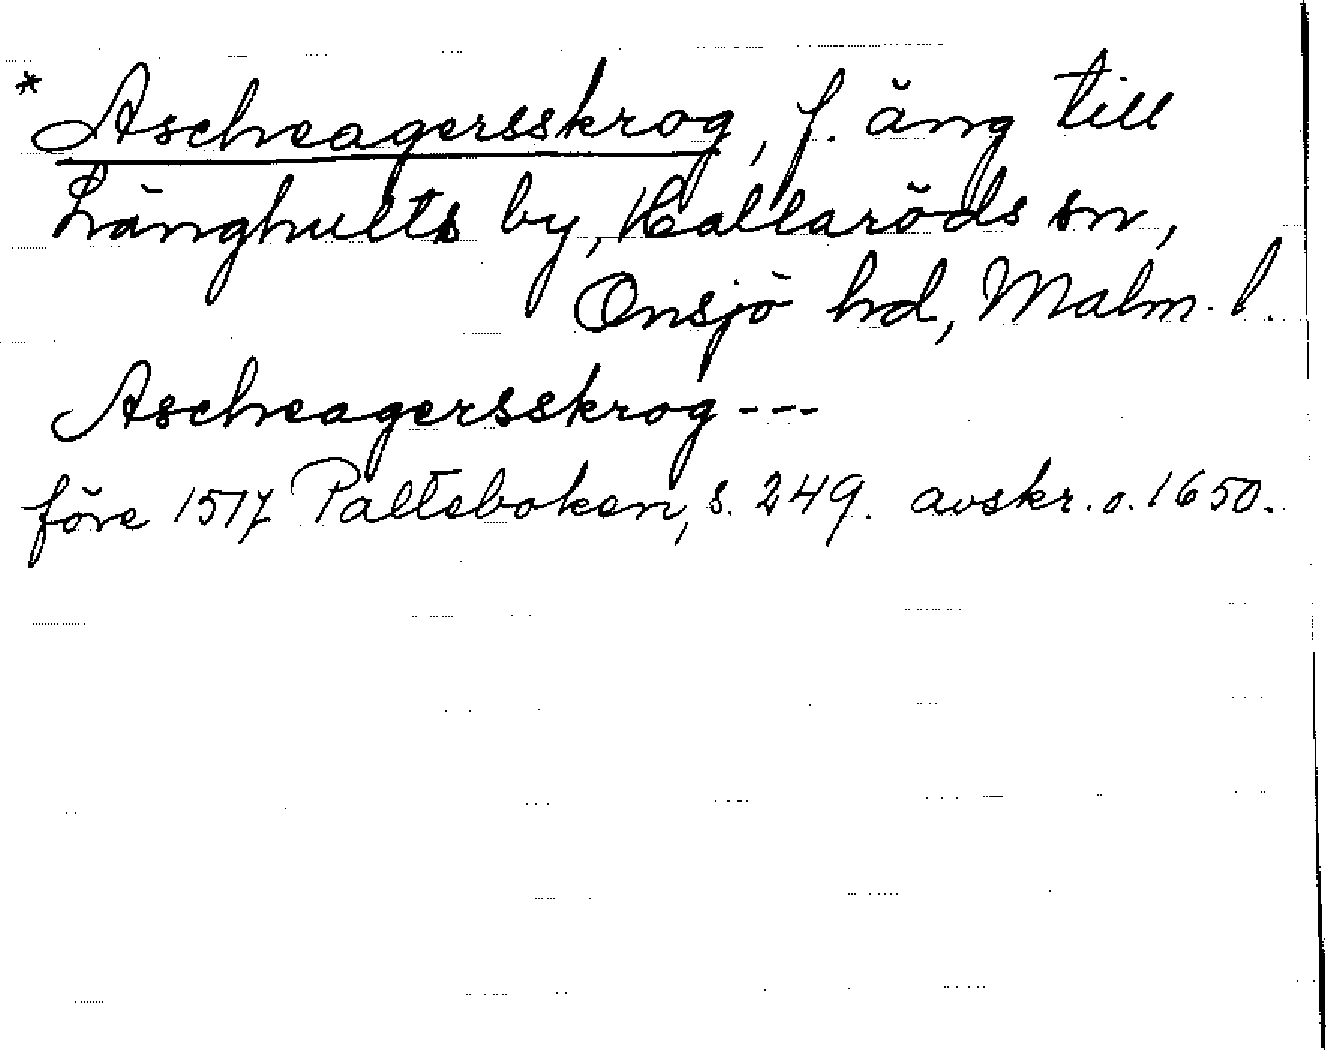 * Ascheagersskrog, f. äng till
Långhults by, Hallaröds sn,
Onsjö hd, Malm. l.
Ascheagersskrog ---
före 1517 Palteboken, s. 249. avskr. o. 1650.